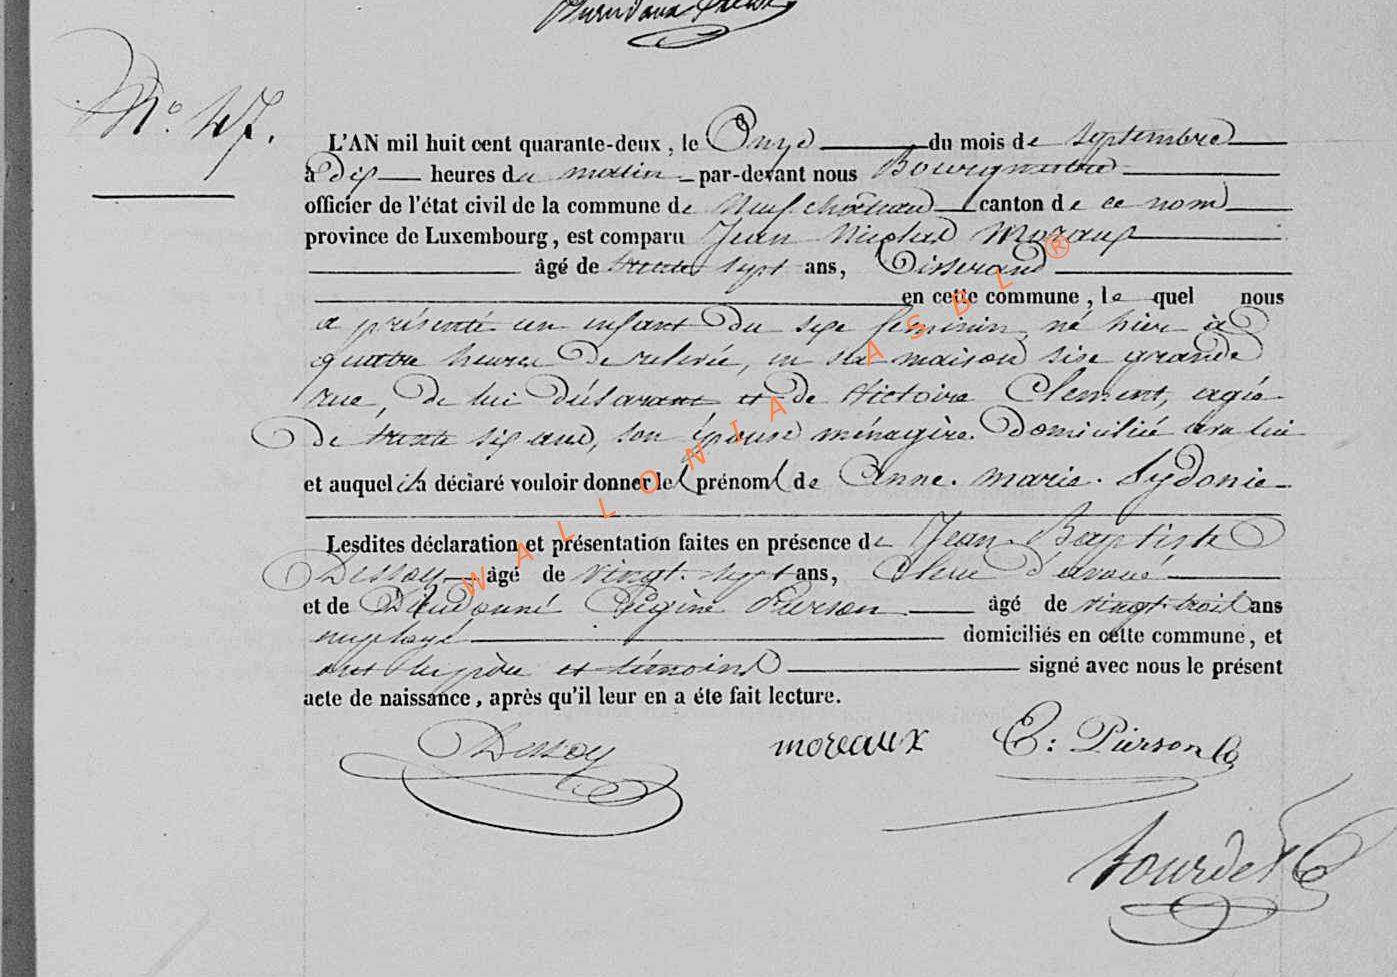 N° 47.
L'AN mil huit cent quarante-deux, le Onze du mois de Septembre
à Dix heures du matin par-devant nous Bourgmestre
officier de l'état civil de la commune de Neufchâteau canton de ce nom
province de Luxembourg, est comparu Jean Nicolas Moraux
âgé de trente sept ans, Tisserand
en cette commune, le quel nous
a présenté un enfant du sexe feminin, né hier à
quatre heures de relevée, en sa maison sise grande
rue, de lui déclarant et de Victoire Clement, agée
de trente six ans, son épouse ménagère domiciliée avec lui
et auquel il a déclaré vouloir donner les prénoms de Anne. marie. Sydonie
Lesdites déclaration et présentation faites en présence de Jean Baptiste
Dessoy âgé de vingt-sept ans, Clerc d'avoué
et de Dieudonné Eugène Pierson âgé de vingt-trois ans
employé domiciliés en cette commune, et
ont les père et témoins signé avec nous le présent
acte de naissance, après qu'il leur en a éte fait lecture.
Dessoy moreaux E: Pierson
Bourdet
WALLONIA ASBL ®